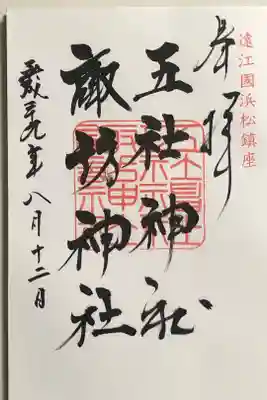 遠江國浜松鎮座
奉拝
五社神社
諏訪神社
平成三十年八月十二日